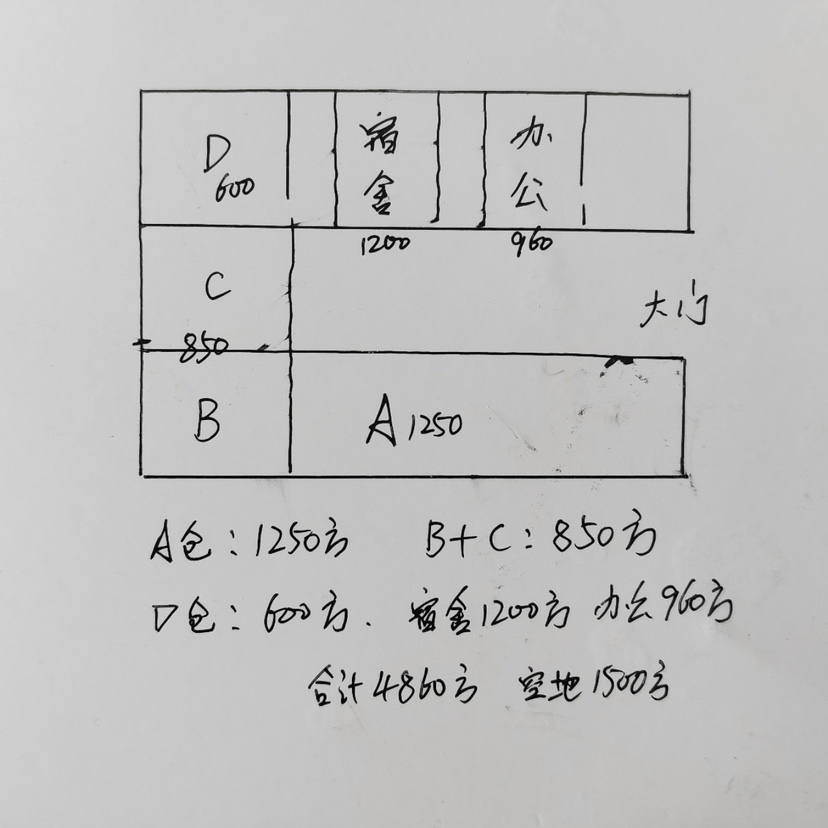 D
600
宿舍
1200
办公
960
C
850
大门
B
A 1250
A仓：1250方 B+C：850方
D仓：600方. 宿舍1200方 办公960方
合计4860方 空地1500方